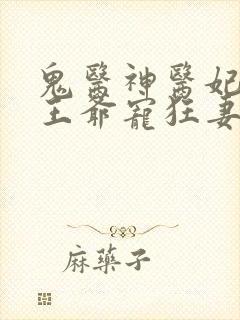 鬼醫神醫妃
王爺寵狂妻
麻藥子